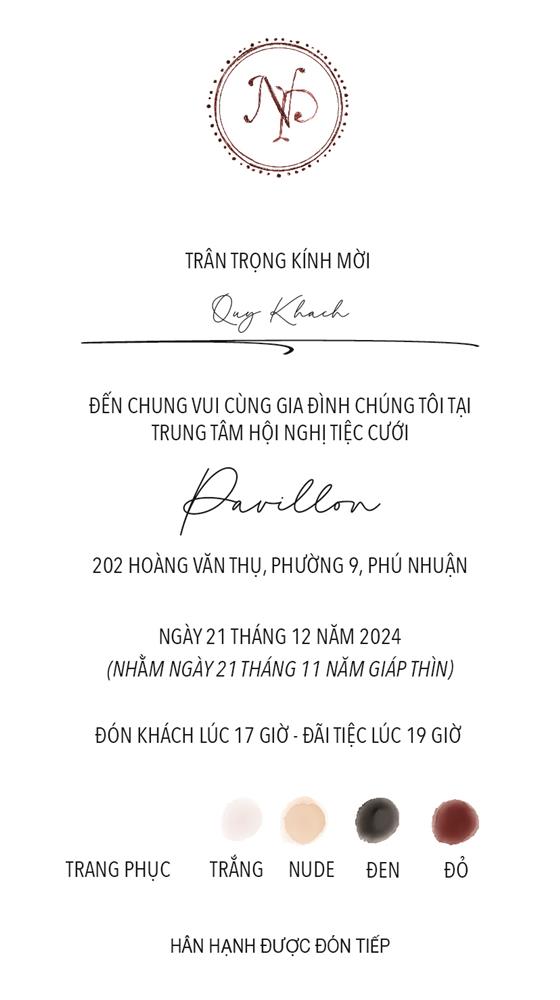 NP
TRÂN TRỌNG KÍNH MỜI
Quy Khach
ĐẾN CHUNG VUI CÙNG GIA ĐÌNH CHÚNG TÔI TẠI
TRUNG TÂM HỘI NGHỊ TIỆC CƯỚI
Pavillon
202 HOÀNG VĂN THỤ, PHƯỜNG 9, PHÚ NHUẬN
NGÀY 21 THÁNG 12 NĂM 2024
(NHẰM NGÀY 21 THÁNG 11 NĂM GIÁP THÌN)
ĐÓN KHÁCH LÚC 17 GIỜ - ĐÃI TIỆC LÚC 19 GIỜ
TRANG PHỤC TRẮNG NUDE ĐEN ĐỎ
HÂN HẠNH ĐƯỢC ĐÓN TIẾP